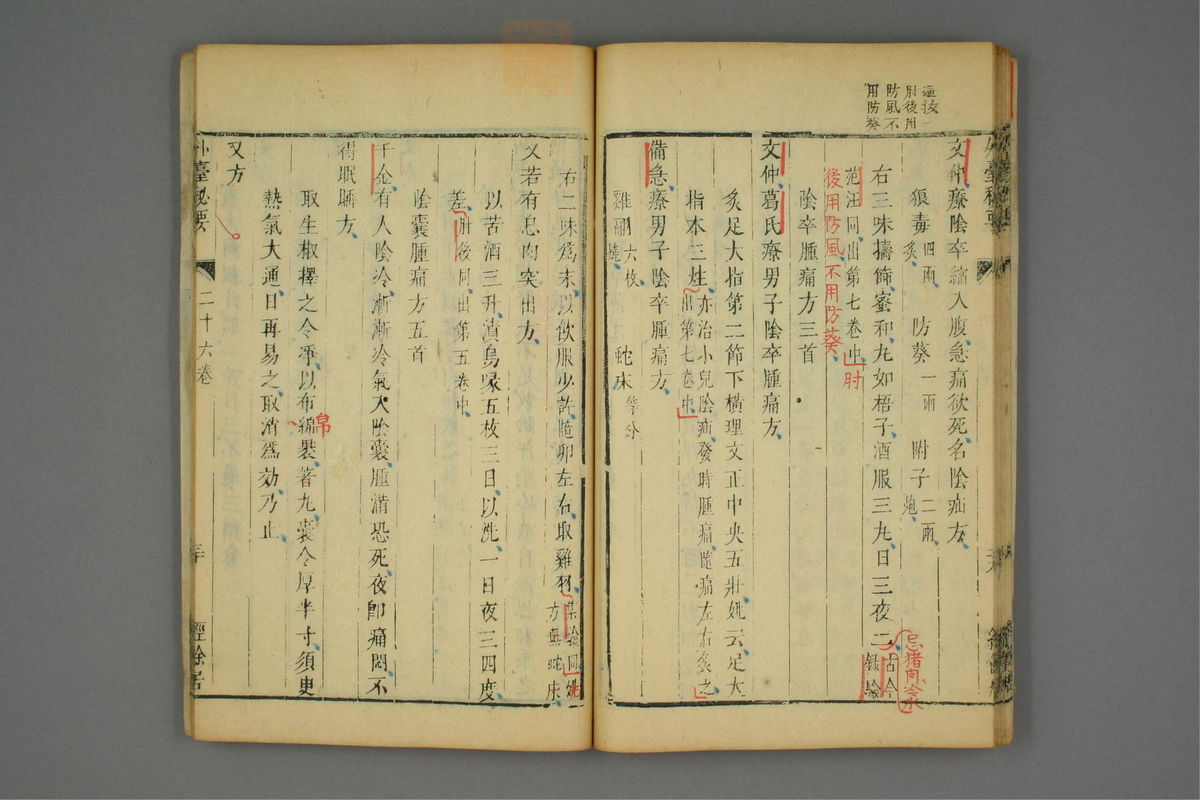 用防葵
防風不
肘後用
文仲療陰卒縮入腹急痛欲死名陰疝方
狼毒四兩炙 防葵一兩 附子二兩炮
右三味擣篩蜜和丸如梧子酒服三丸日三夜二古今錄驗
忌猪肉冷水
范汪同出第七卷中
肘
後用防風不用防葵
陰卒腫痛方三首
文仲葛氏療男子陰卒腫痛方
炙足大指第二節下橫理文正中央五壯姚云足大
指本三壯亦治小兒陰疝發時腫痛隨痛左右灸之出第七卷中
備急療男子陰卒腫痛方
雞翮六枚燒 蛇床等分
右二味爲末以飲服少許隨卵左右取雞羽集驗同姚方無蛇床
又若有息肉突出方
以苦酒三升漬烏喙五枚三日以洗一日夜三四度
差肘後同出第五卷中
陰囊腫痛方五首
千金有人陰冷漸漸冷氣入陰囊腫滿恐死夜卽痛悶不
得眠睡方
取生椒擇之令淨以布綿裹著丸囊令厚半寸須臾
帛
熱氣大通日再易之取消爲効乃止
又方
外臺秘要 二十六卷 經餘居